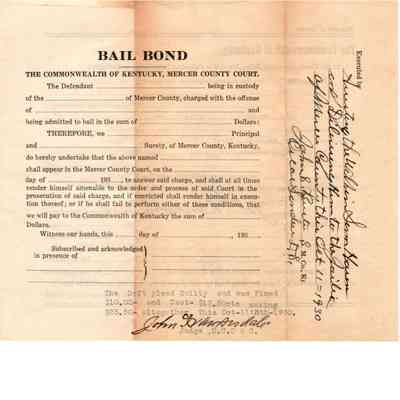 BAIL BOND
THE COMMONWEALTH OF KENTUCKY, MERCER COUNTY COURT.
The Defendant being in custody
of the of Mercer County, charged with the offense
of and
being admitted to bail in the sum of Dollars:
THEREFORE, we Principal
and Surety, of Mercer County, Kentucky,
do hereby undertake that the above named
shall appear in the Mercer County Court, on the
day of 193 to answer said charge, and shall at all times
render himself amenable to the order and process of said Court in the
prosecution of said charge, and if convicted shall render himself in execu-
tion thereof; or if he shall fail to perform either of these conditions, that
we will pay to the Commonwealth of Kentucky the sum of
Dollars.
Witness our hands, this day of , 193
Subscribed and acknowledged
in presence of
The Deft plead Guilty and was Fined
$10.00 and Cost- making
altogether. This Oct- 1930.
John
Judge
Executed by
and Delivering him to the Jailer
of Mercer County this Oct 11 = 1930
John S. M. Co. Ky.